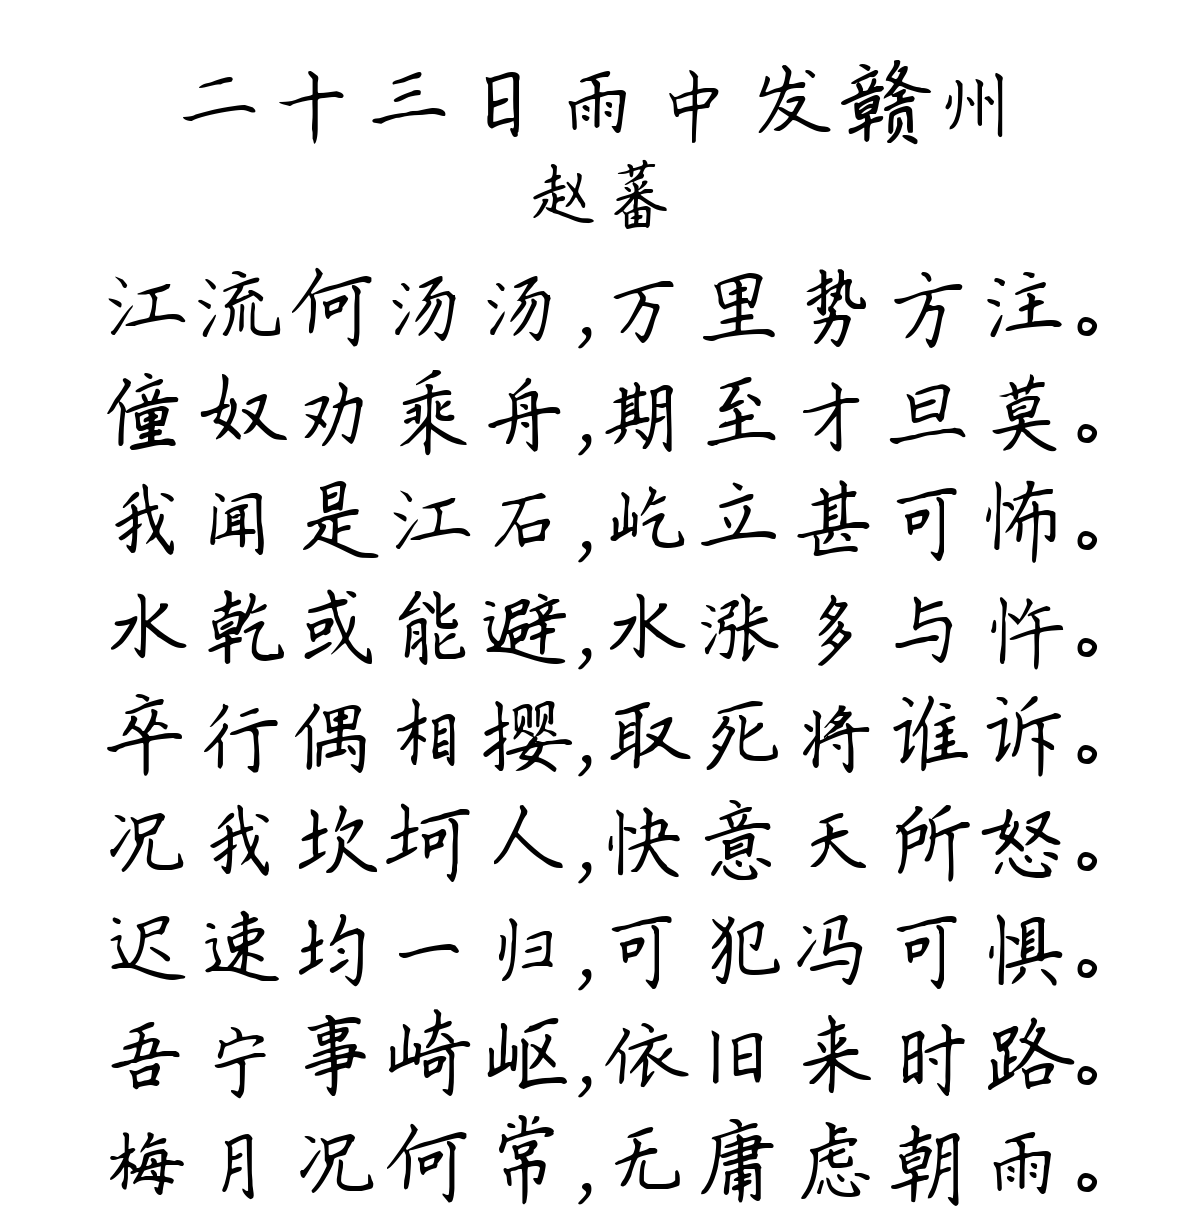 二十三日雨中发赣州
赵蕃
江流何汤汤,万里势方注。
僮奴劝乘舟,期至才旦莫。
我闻是江石,屹立甚可怖。
水乾或能避,水涨多与忤。
卒行偶相撄,取死将谁诉。
况我坎坷人,快意天所怒。
迟速均一归,可犯冯可惧。
吾宁事崎岖,依旧来时路。
梅月况何常,无庸虑朝雨。